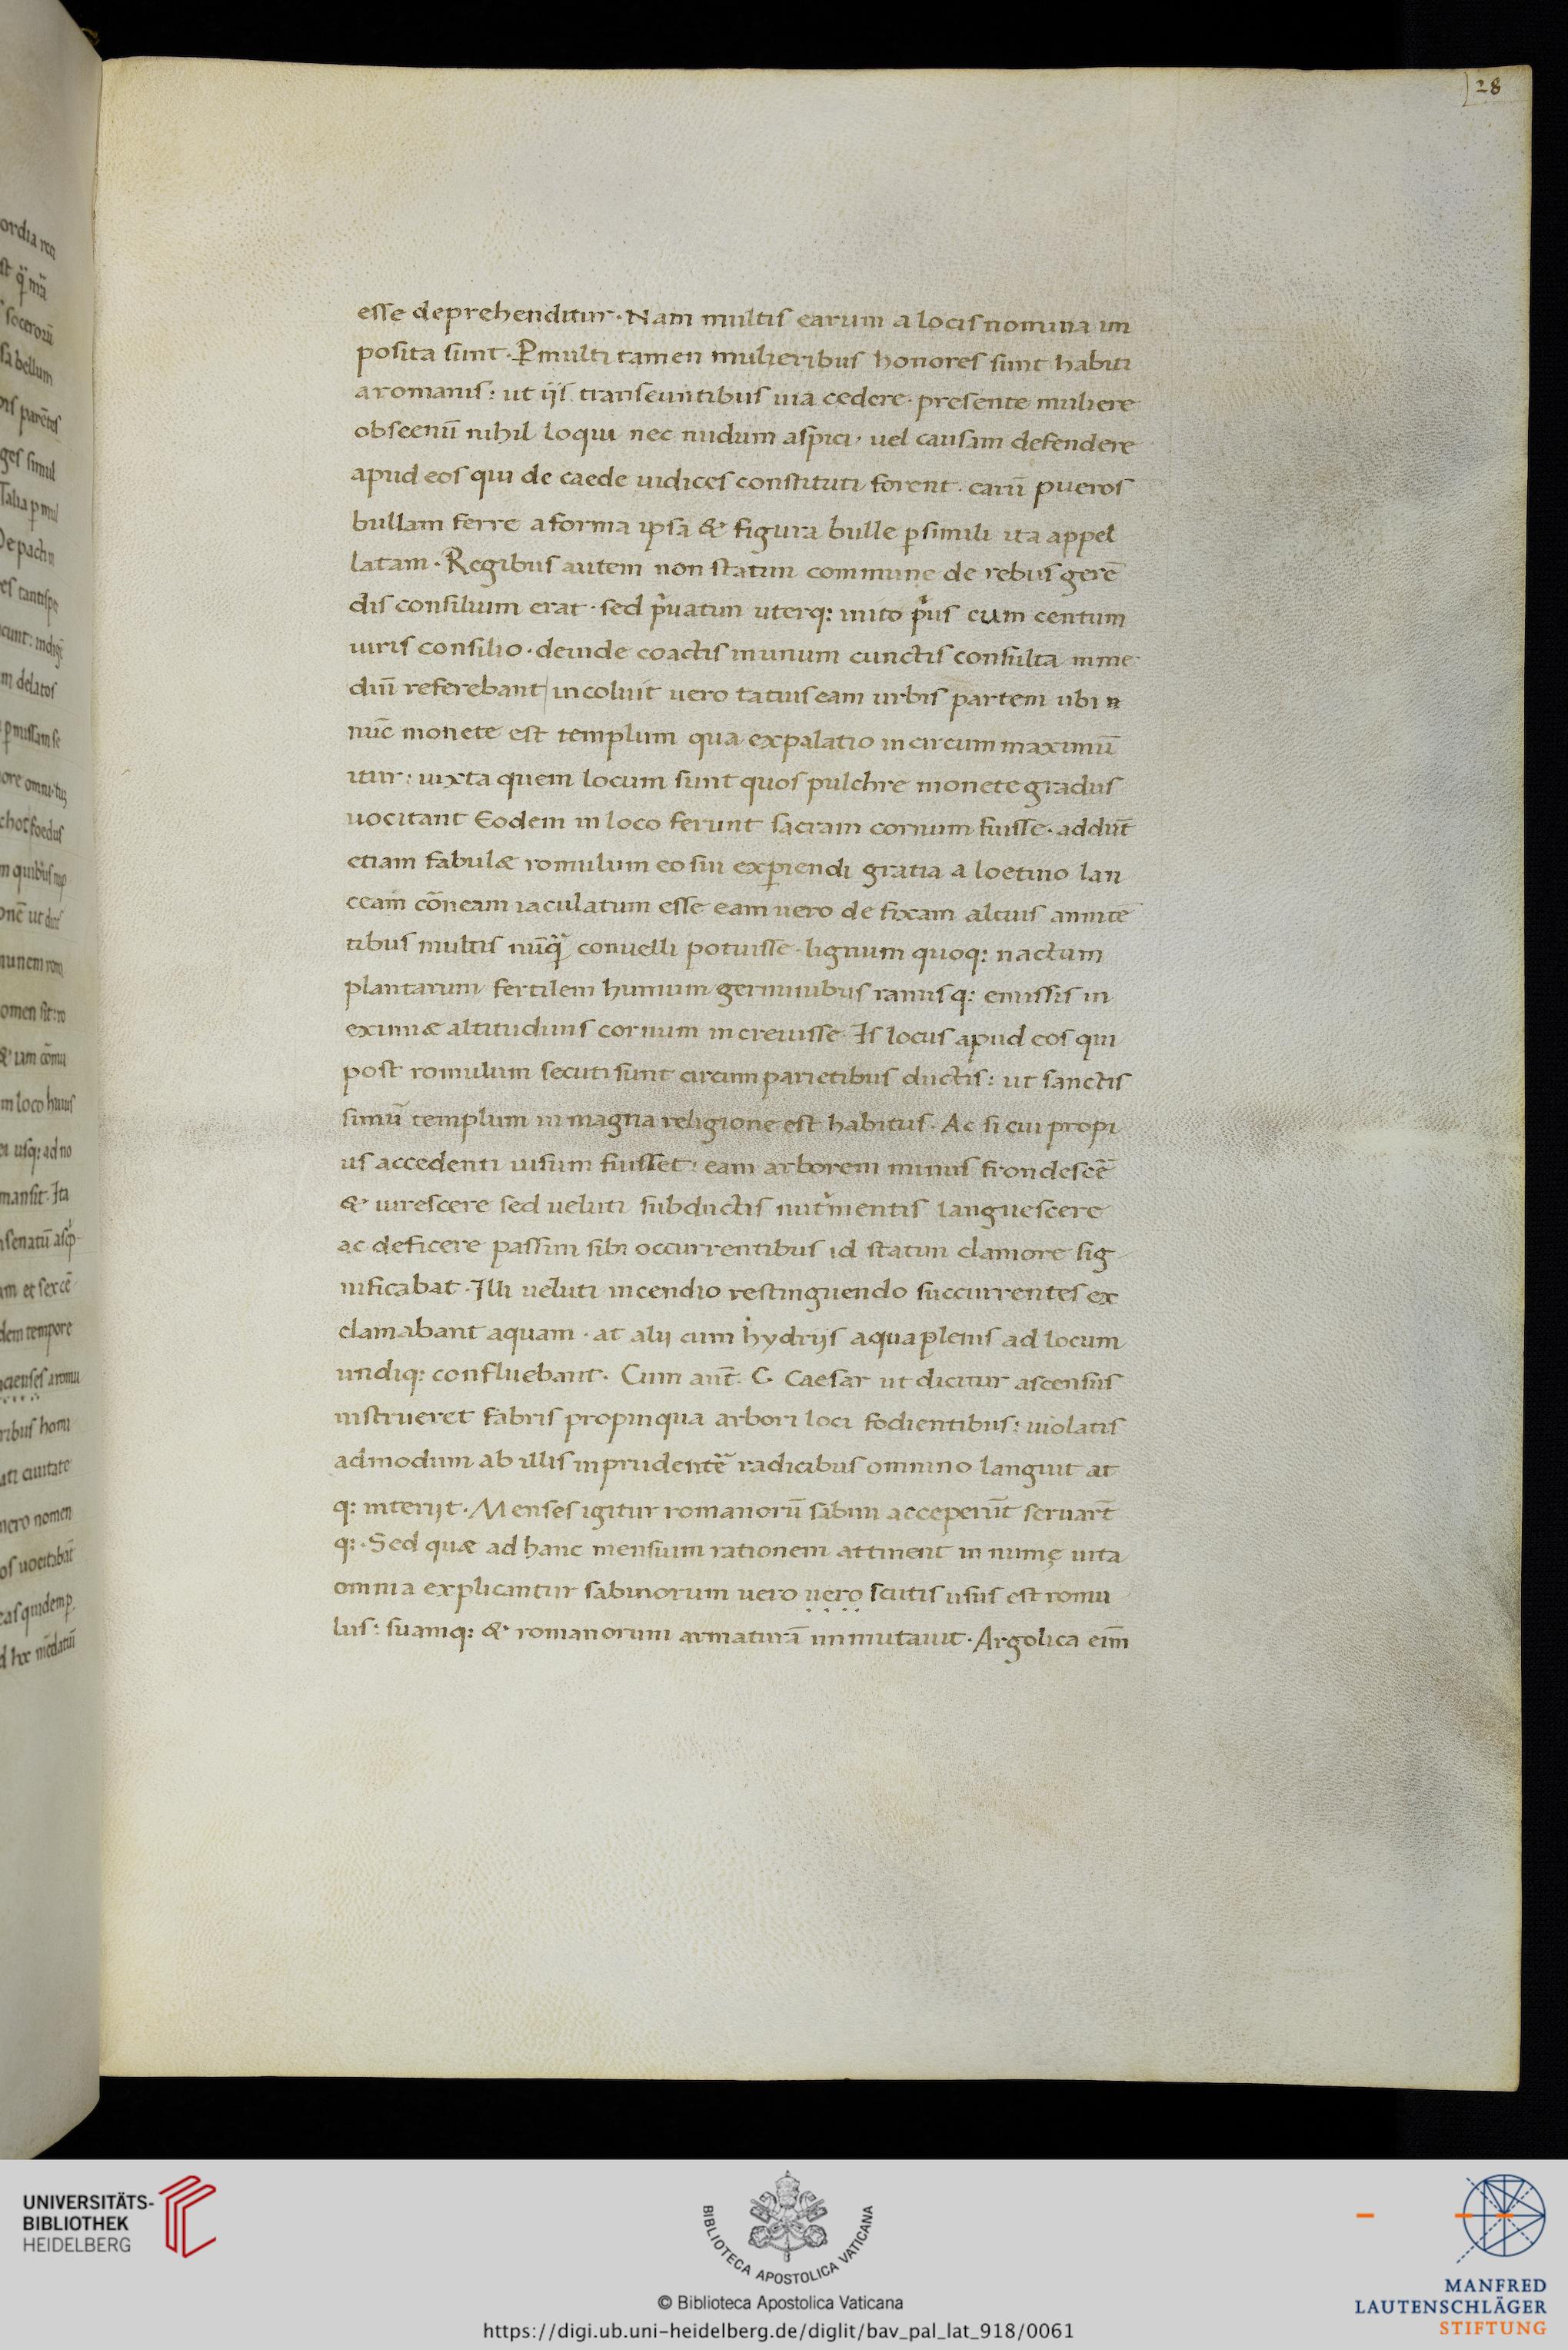 28
esse deprehenditur · Nam multis earum a locis nomina im
posita sunt · P̱multi tamen mulieribus honores sunt habiti
a romanis : ut ijs transeuntibus uia cedere · presente muliere
obscenū nihil loqui nec nudum aspici, uel causam defendere
apud eos qui de caede iudices constituti forent · earū pueros
bullam ferre a forma ipsa & figura bulle ꝑsimili ita appel
latam · Regibus autem non statim commune de rebus gerē
dis consilium erat · sed p̍uatim uterq: inito p̍us cum centum
uiris consilio · deinde coactis in unum cunctis consulta in me
diū referebant incoluit uero tatius eam urbis partem ubi n
nūc monete est templum qua ex palatio in circum maximū
itur : iuxta quem locum sunt quos pulchre monete gradus
uocitant Eodem in loco ferunt sacram cornum fuisse · addūt
etiam fabulæ romulum eo sui exꝑiendi gratia a loetino lan
ceam cōneam iaculatum esse eam uero de fixam altius annitē
tibus multis nūq̃ conuelli potuisse · lignum quoq: nactum
plantarum fertilem humum germinibus ramisq: emissis in
eximiæ altitudinis cornum increuisse Is locus apud eos qui
post romulum secuti sunt circum parietibus ductis : ut sanctis
simū templum in magna religione est habitus · Ac si cui propi
us accedenti uisum fuisset : eam arborem minus frondescē
& uirescere sed ueluti subductis nut̍mentis languescere
ac deficere passim sibi occurrentibus id statim clamore sig
nificabat · Illi ueluti incendio restinguendo succurrentes ex
clamabant aquam · at alij cum hydrijs aqua plenis ad locum
undiq: confluebant · Cum aūt C. Caesar ut dicitur ascensus
instrueret fabris propinqua arbori loci fodientibus : uiolatis
admodum ab illis inprudentē radicibus omnino languit at
q: interijt · Menses igitur romanorū sabini acceperūt seruarūt
q: · Sed quæ ad hanc mensium rationem attinent in numę uita
omnia explicantur sabinorum uero uero scutis usus est romu
lus : suamq: & romanorum armaturā immutauit · Argolica eīm
UNIVERSITÄTS-
BIBLIOTHEK
HEIDELBERG
BIBLIOTECA APOSTOLICA VATICANA
© Biblioteca Apostolica Vaticana
https://digi.ub.uni-heidelberg.de/diglit/bav_pal_lat_918/0061
MANFRED
LAUTENSCHLÄGER
STIFTUNG